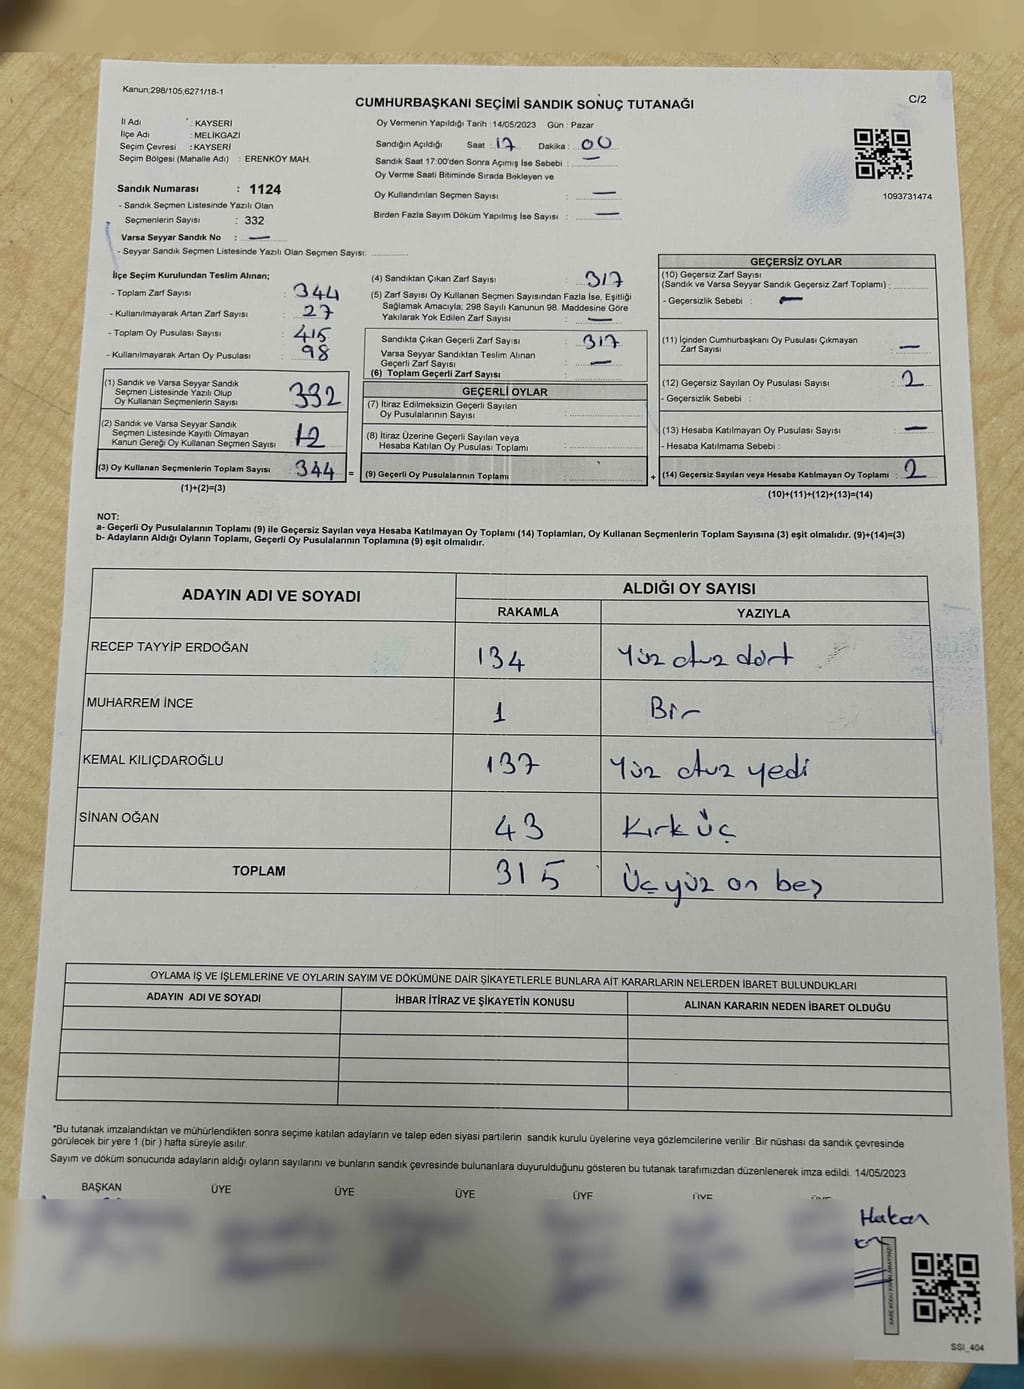 Kanun;298/105;6271/18-1
CUMHURBAŞKANI SEÇİMİ SANDIK SONUÇ TUTANAĞI
C/2
İl Adı : KAYSERİ
İlçe Adı : MELİKGAZİ
Seçim Çevresi : KAYSERİ
Seçim Bölgesi (Mahalle Adı) : ERENKÖY MAH.
Sandık Numarası : 1124
- Sandık Seçmen Listesinde Yazılı Olan
Seçmenlerin Sayısı : 332
Varsa Seyyar Sandık No : —
- Seyyar Sandık Seçmen Listesinde Yazılı Olan Seçmen Sayısı:
Oy Vermenin Yapıldığı Tarih :14/05/2023 Gün : Pazar
Sandığın Açıldığı Saat : 17 Dakika : 00
Sandık Saat 17:00'den Sonra Açımış İse Sebebi : —
Oy Verme Saati Bitiminde Sırada Bekleyen ve
Oy Kullandırılan Seçmen Sayısı : —
Birden Fazla Sayım Döküm Yapılmış İse Sayısı : —
1093731474
İlçe Seçim Kurulundan Teslim Alınan;
- Toplam Zarf Sayısı : 344
- Kullanılmayarak Artan Zarf Sayısı : 27
- Toplam Oy Pusulası Sayısı : 415
- Kullanılmayarak Artan Oy Pusulası : 98
(1) Sandık ve Varsa Seyyar Sandık
Seçmen Listesinde Yazılı Olup
Oy Kullanan Seçmenlerin Sayısı : 332
(2) Sandık ve Varsa Seyyar Sandık
Seçmen Listesinde Kayıtlı Olmayan
Kanun Gereği Oy Kullanan Seçmen Sayısı : 12
(3) Oy Kullanan Seçmenlerin Toplam Sayısı : 344 =
(1)+(2)=(3)
(4) Sandıktan Çıkan Zarf Sayısı : 317
(5) Zarf Sayısı Oy Kullanan Seçmen Sayısından Fazla İse, Eşitliği
Sağlamak Amacıyla; 298 Sayılı Kanunun 98. Maddesine Göre
Yakılarak Yok Edilen Zarf Sayısı : —
Sandıkta Çıkan Geçerli Zarf Sayısı : 317
Varsa Seyyar Sandıktan Teslim Alınan
Geçerli Zarf Sayısı : —
(6) Toplam Geçerli Zarf Sayısı :
GEÇERLİ OYLAR
(7) İtiraz Edilmeksizin Geçerli Sayılan
Oy Pusulalarının Sayısı :
(8) İtiraz Üzerine Geçerli Sayılan veya
Hesaba Katılan Oy Pusulası Toplamı :
(9) Geçerli Oy Pusulalarının Toplamı : +
GEÇERSİZ OYLAR
(10) Geçersiz Zarf Sayısı
(Sandık ve Varsa Seyyar Sandık Geçersiz Zarf Toplamı) :
- Geçersizlik Sebebi : —
(11) İçinden Cumhurbaşkanı Oy Pusulası Çıkmayan
Zarf Sayısı : —
(12) Geçersiz Sayılan Oy Pusulası Sayısı : 2
- Geçersizlik Sebebi :
(13) Hesaba Katılmayan Oy Pusulası Sayısı : —
- Hesaba Katılmama Sebebi :
(14) Geçersiz Sayılan veya Hesaba Katılmayan Oy Toplamı : 2
(10)+(11)+(12)+(13)=(14)
NOT:
a- Geçerli Oy Pusulalarının Toplamı (9) ile Geçersiz Sayılan veya Hesaba Katılmayan Oy Toplamı (14) Toplamları, Oy Kullanan Seçmenlerin Toplam Sayısına (3) eşit olmalıdır. (9)+(14)=(3)
b- Adayların Aldığı Oyların Toplamı, Geçerli Oy Pusulalarının Toplamına (9) eşit olmalıdır.
ADAYIN ADI VE SOYADI
ALDIĞI OY SAYISI
RAKAMLA YAZIYLA
RECEP TAYYİP ERDOĞAN 134 Yüz otuz dört
MUHARREM İNCE 1 Bir
KEMAL KILIÇDAROĞLU 137 Yüz otuz yedi
SİNAN OĞAN 43 Kırk üç
TOPLAM 315 Üç yüz on beş
OYLAMA İŞ VE İŞLEMLERİNE VE OYLARIN SAYIM VE DÖKÜMÜNE DAİR ŞİKAYETLERLE BUNLARA AİT KARARLARIN NELERDEN İBARET BULUNDUKLARI
ADAYIN ADI VE SOYADI İHBAR İTİRAZ VE ŞİKAYETİN KONUSU ALINAN KARARIN NEDEN İBARET OLDUĞU
"Bu tutanak imzalandıktan ve mühürlendikten sonra seçime katılan adayların ve talep eden siyasi partilerin sandık kurulu üyelerine veya gözlemcilerine verilir .Bir nüshası da sandık çevresinde
görülecek bir yere 1 (bir ) hafta süreyle asılır.
Sayım ve döküm sonucunda adayların aldığı oyların sayılarını ve bunların sandık çevresinde bulunanlara duyurulduğunu gösteren bu tutanak tarafımızdan düzenlenerek imza edildi. 14/05/2023
BAŞKAN ÜYE ÜYE ÜYE ÜYE ÜYE ÜYE
Hakan
SSI_404